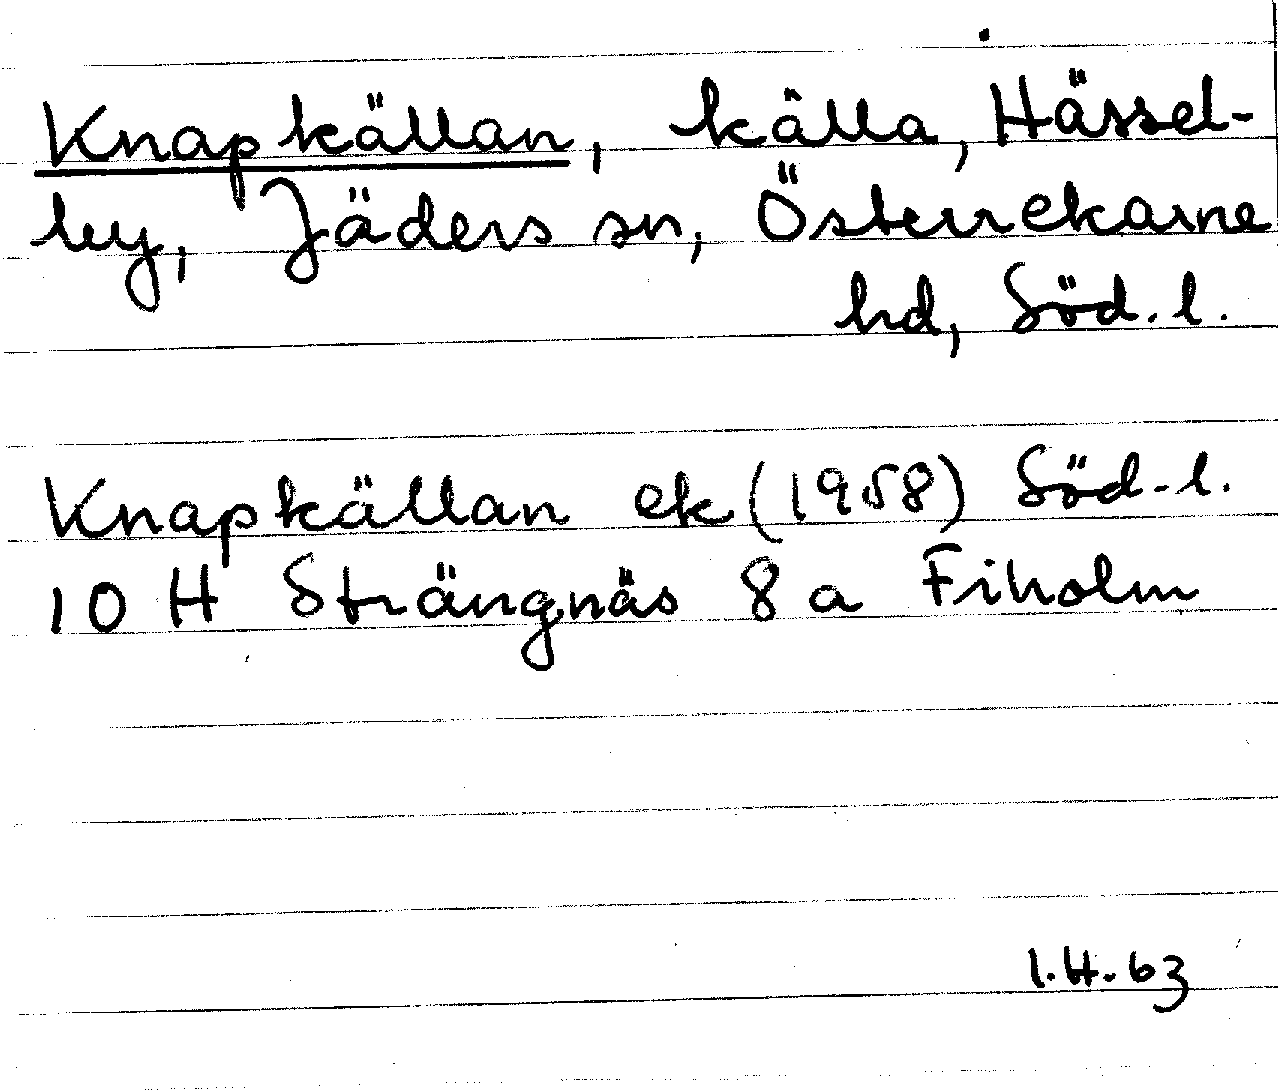 Knapkällan, källa, Hässel-
by, Jäders sn, Österrekarne
hd, Söd.l.
Knapkällan ek (1958) Söd.l.
10 H Strängnäs 8 a Fiholm
I.H.63